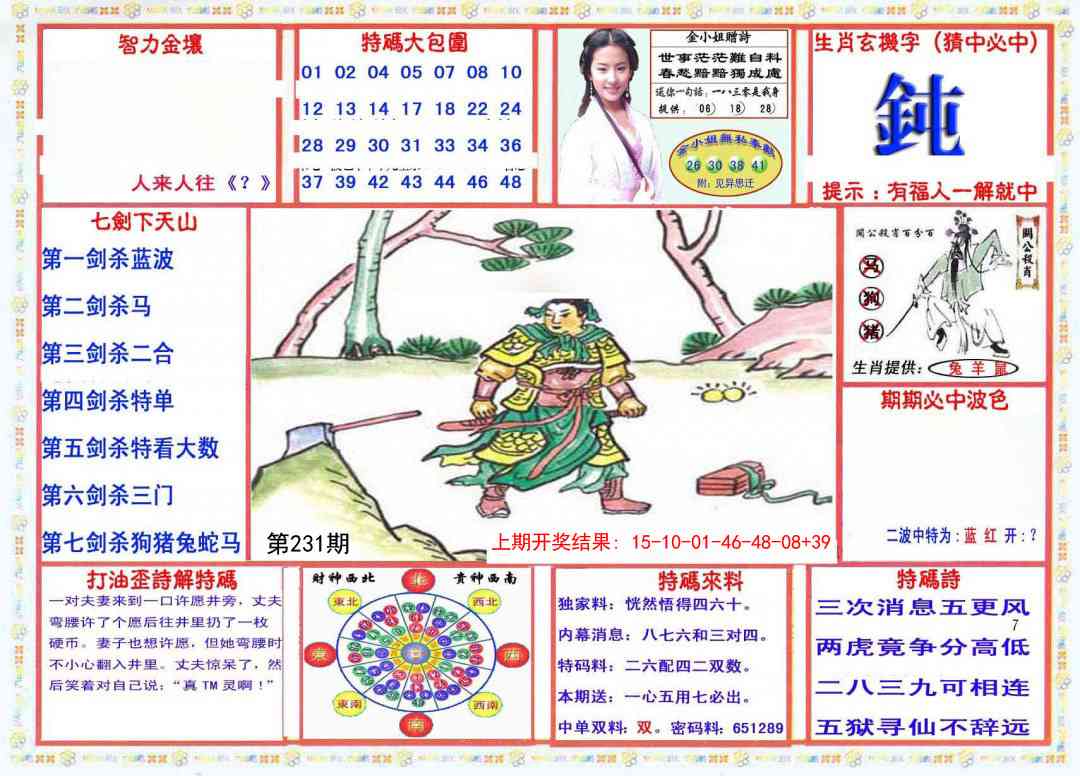 智力金壤
人来人往《？》
特碼大包圍
01 02 04 05 07 08 10
12 13 14 17 18 22 24
28 29 30 31 33 34 36
37 39 42 43 44 46 48
金小姐贈詩
世事茫茫難自料
春愁黯黯獨成處
送你一句话：一八三零是我身
提供： 06） 18） 28）
金小姐無私奉獻
26 30 38 41
附：见异思迁
生肖玄機字（猜中必中）
鈍
提示：有福人一解就中
七劍下天山
第一剑杀蓝波
第二剑杀马
第三剑杀二合
第四剑杀特单
第五剑杀特看大数
第六剑杀三门
第七剑杀狗猪兔蛇马
第231期
上期开奖结果：15-10-01-46-48-08+39
關公殺宵百分百
關公殺肖
马
狗
猪
生肖提供：兔 羊 鼠
期期必中波色
二波中特为：蓝 红 开：？
打油歪詩解特碼
一对夫妻来到一口许愿井旁，丈夫
弯腰许了个愿后往井里扔了一枚
硬币。妻子也想许愿，但她弯腰时
不小心翻入井里。丈夫惊呆了，然
后笑着对自己说：“真TM灵啊！”
财神西北 貴神西南
北
東北 西北
東 西
東南 西南
南
特碼來料
独家料：恍然悟得四六十。
内幕消息：八七六和三对四。
特码料：二六配四二双数。
本期送：一心五用七必出。
中单双料：双。密码料：651289
特碼詩
三次消息五更风
7
两虎竞争分高低
二八三九可相连
五狱寻仙不辞远